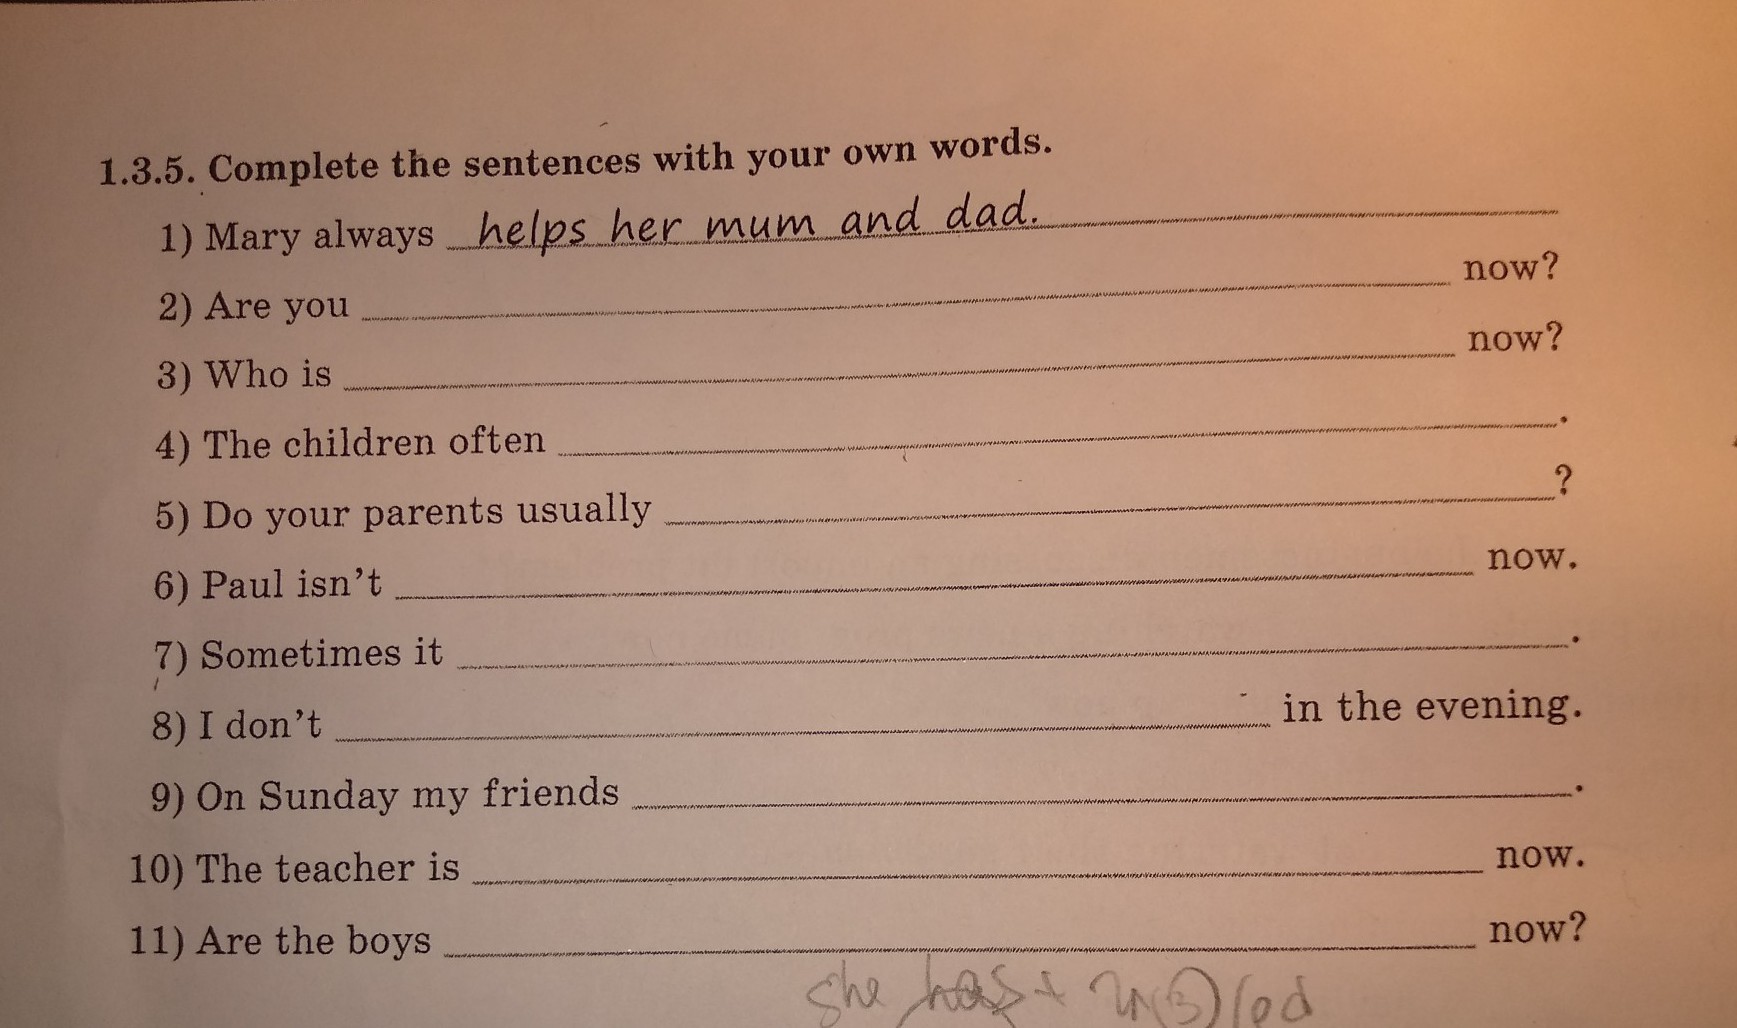 1.3.5. Complete the sentences with your own words.
1) Mary always helps her mum and dad.
2) Are you now?
3) Who is now?
4) The children often .
5) Do your parents usually ?
6) Paul isn't now.
7) Sometimes it .
8) I don't in the evening.
9) On Sunday my friends .
10) The teacher is now.
11) Are the boys now?
she has +